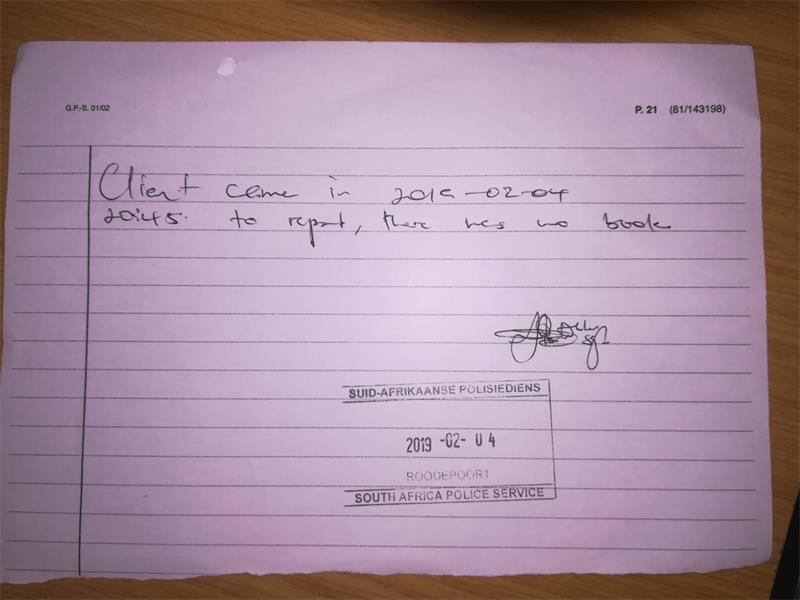 G.P.-S. 01/02
P. 21 (81/143198)
Client came in 2019-02-04
20:45. to report, there was no book
SUID-AFRIKAANSE POLISIEDIENS
2019 -02- 04
ROODEPOORT
SOUTH AFRICA POLICE SERVICE